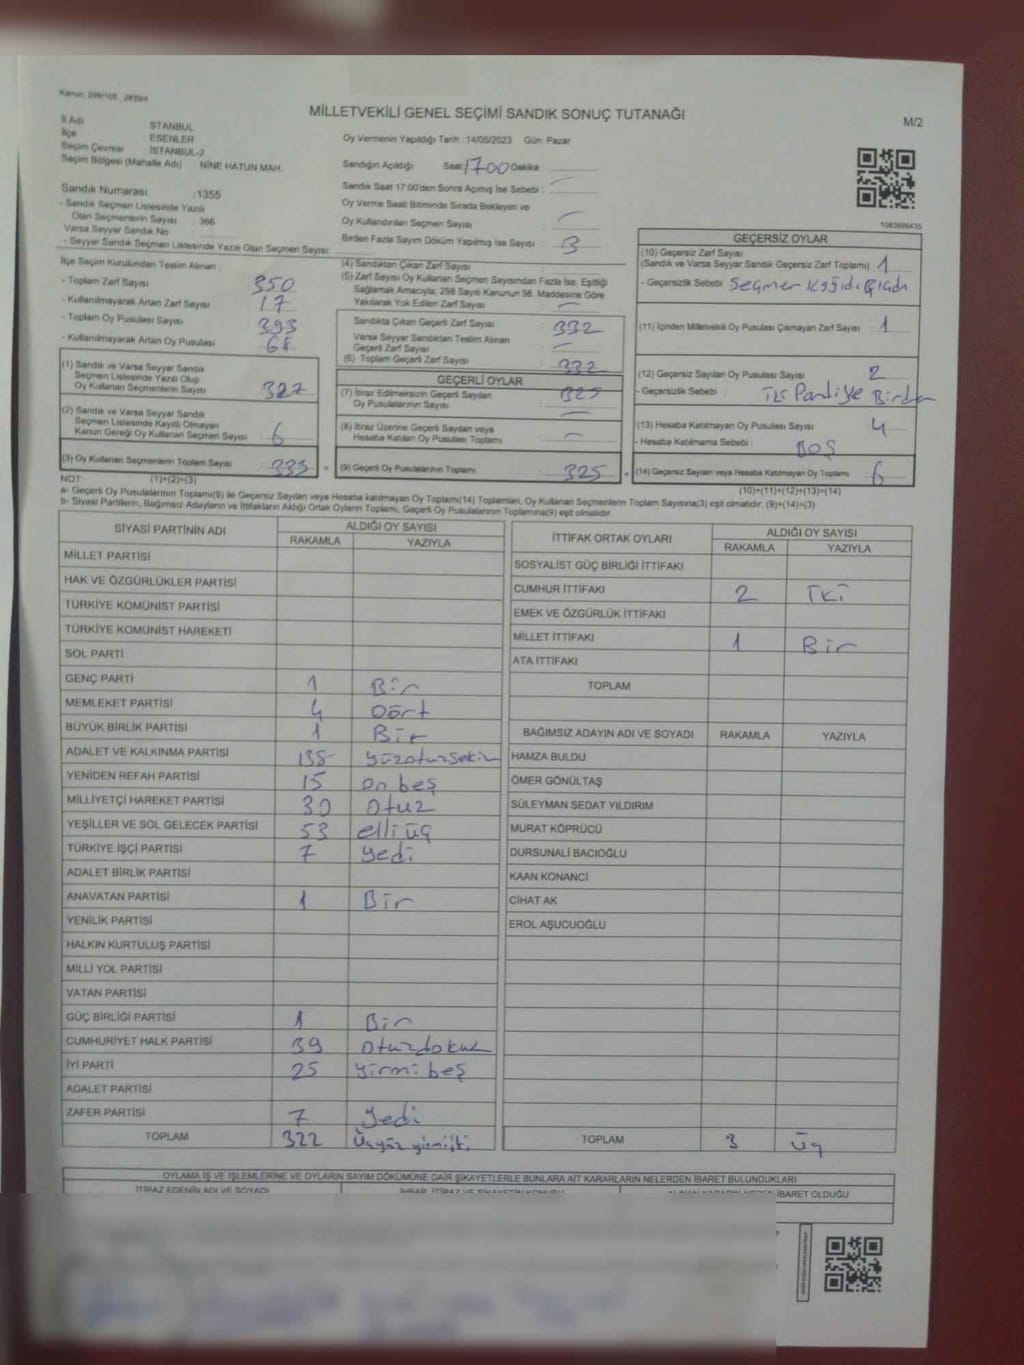 Kanun: 298/105 , 2839/4
MİLLETVEKİLİ GENEL SEÇİMİ SANDIK SONUÇ TUTANAĞI
M/2
İl Adı : İSTANBUL
İlçe : ESENLER
Seçim Çevresi : İSTANBUL-2
Seçim Bölgesi (Mahalle Adı) : NİNE HATUN MAH.
Sandık Numarası : 1355
- Sandık Seçmen Listesinde Yazılı
Olan Seçmenlerin Sayısı : 366
Varsa Seyyar Sandık No
- Seyyar Sandık Seçmen Listesinde Yazılı Olan Seçmen Sayısı:
İlçe Seçim Kurulundan Teslim Alınan :
- Toplam Zarf Sayısı : 350
- Kullanılmayarak Artan Zarf Sayısı : 17
- Toplam Oy Pusulası Sayısı : 393
- Kullanılmayarak Artan Oy Pusulası :
(1) Sandık ve Varsa Seyyar Sandık
Seçmen Listesinde Yazılı Olup
Oy Kullanan Seçmenlerin Sayısı : 327
(2) Sandık ve Varsa Seyyar Sandık
Seçmen Listesinde Kayıtlı Olmayan
Kanun Gereği Oy Kullanan Seçmen Sayısı : 6
(3) Oy Kullanan Seçmenlerin Toplam Sayısı :
Oy Vermenin Yapıldığı Tarih : 14/05/2023 Gün: Pazar
Sandığın Açıldığı Saat: 1700 Dakika :
Sandık Saat 17.00'den Sonra Açılmış İse Sebebi :
Oy Verme Saati Bitiminde Sırada Bekleyen ve
Oy Kullandırılan Seçmen Sayısı :
Birden Fazla Sayım Döküm Yapılmış İse Sayısı : 3
(4) Sandıktan Çıkan Zarf Sayısı :
(5) Zarf Sayısı Oy Kullanan Seçmen Sayısından Fazla İse, Eşitliği
Sağlamak Amacıyla; 298 Sayılı Kanunun 98. Maddesine Göre
Yakılarak Yok Edilen Zarf Sayısı :
Sandıkta Çıkan Geçerli Zarf Sayısı : 332
Varsa Seyyar Sandıktan Teslim Alınan
Geçerli Zarf Sayısı :
(6) Toplam Geçerli Zarf Sayısı : 332
GEÇERLİ OYLAR
(7) İtiraz Edilmeksizin Geçerli Sayılan : 325
Oy Pusulalarının Sayısı
(8) İtiraz Üzerine Geçerli Sayılan veya
Hesaba Katılan Oy Pusulası Toplamı :
(9) Geçerli Oy Pusulalarının Toplamı : 325
1083696435
GEÇERSİZ OYLAR
(10) Geçersiz Zarf Sayısı
(Sandık ve Varsa Seyyar Sandık Geçersiz Zarf Toplamı) : 1
- Geçersizlik Sebebi : Seçmen Kağıdı Çıktı
(11) İçinden Milletvekili Oy Pusulası Çıkmayan Zarf Sayısı : 1
(12) Geçersiz Sayılan Oy Pusulası Sayısı : 2
- Geçersizlik Sebebi : İki Partiye Birden
(13) Hesaba Katılmayan Oy Pusulası Sayısı : 4
- Hesaba Katılmama Sebebi : BOŞ
(14) Geçersiz Sayılan veya Hesaba Katılmayan Oy Toplamı : 6
NOT: (1)+(2)=(3) (10)+(11)+(12)+(13)=(14)
a- Geçerli Oy Pusulalarının Toplamı(9) ile Geçersiz Sayılan veya Hesaba katılmayan Oy Toplamı(14) Toplamları, Oy Kullanan Seçmenlerin Toplam Sayısına(3) eşit olmalıdır. (9)+(14)=(3)
b- Siyasi Partilerin, Bağımsız Adayların ve İttifakların Aldığı Ortak Oyların Toplamı, Geçerli Oy Pusulalarının Toplamına(9) eşit olmalıdır.
SİYASİ PARTİNİN ADI ALDIĞI OY SAYISI
RAKAMLA YAZIYLA
MİLLET PARTİSİ
HAK VE ÖZGÜRLÜKLER PARTİSİ
TÜRKİYE KOMÜNİST PARTİSİ
TÜRKİYE KOMÜNİST HAREKETİ
SOL PARTİ
GENÇ PARTİ 1 Bir
MEMLEKET PARTİSİ 4 Dört
BÜYÜK BİRLİK PARTİSİ 1 Bir
ADALET VE KALKINMA PARTİSİ 138 yüzotuzsekiz
YENİDEN REFAH PARTİSİ 15 on beş
MİLLİYETÇİ HAREKET PARTİSİ 30 otuz
YEŞİLLER VE SOL GELECEK PARTİSİ 53 elli üç
TÜRKİYE İŞÇİ PARTİSİ 7 yedi
ADALET BİRLİK PARTİSİ
ANAVATAN PARTİSİ 1 Bir
YENİLİK PARTİSİ
HALKIN KURTULUŞ PARTİSİ
MİLLİ YOL PARTİSİ
VATAN PARTİSİ
GÜÇ BİRLİĞİ PARTİSİ 1 Bir
CUMHURİYET HALK PARTİSİ 39 otuzdokuz
İYİ PARTİ 25 yirmi beş
ADALET PARTİSİ
ZAFER PARTİSİ 7 yedi
TOPLAM 322 Üçyüz yirmi iki
İTTİFAK ORTAK OYLARI ALDIĞI OY SAYISI
RAKAMLA YAZIYLA
SOSYALİST GÜÇ BİRLİĞİ İTTİFAKI
CUMHUR İTTİFAKI 2 İki
EMEK VE ÖZGÜRLÜK İTTİFAKI
MİLLET İTTİFAKI 1 Bir
ATA İTTİFAKI
TOPLAM
BAĞIMSIZ ADAYIN ADI VE SOYADI RAKAMLA YAZIYLA
HAMZA BULDU
ÖMER GÖNÜLTAŞ
SÜLEYMAN SEDAT YILDIRIM
MURAT KÖPRÜCÜ
DURSUNALİ BACIOĞLU
KAAN KONANCİ
CİHAT AK
EROL AŞUCUOĞLU
TOPLAM 3 üç
OYLAMA İŞ VE İŞLEMLERİNE VE OYLARIN SAYIM DÖKÜMÜNE DAİR ŞİKAYETLERLE BUNLARA AİT KARARLARIN NELERDEN İBARET BULUNDUKLARI
İTİRAZ EDENİN ADI VE SOYADI İHBAR, İTİRAZ VE ŞİKAYETİN KONUSU ALINAN KARARIN NEDEN İBARET OLDUĞU